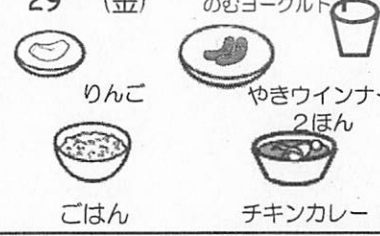 29 (金) のむヨーグルト
りんご
やきウインナー
2ほん
ごはん
チキンカレー